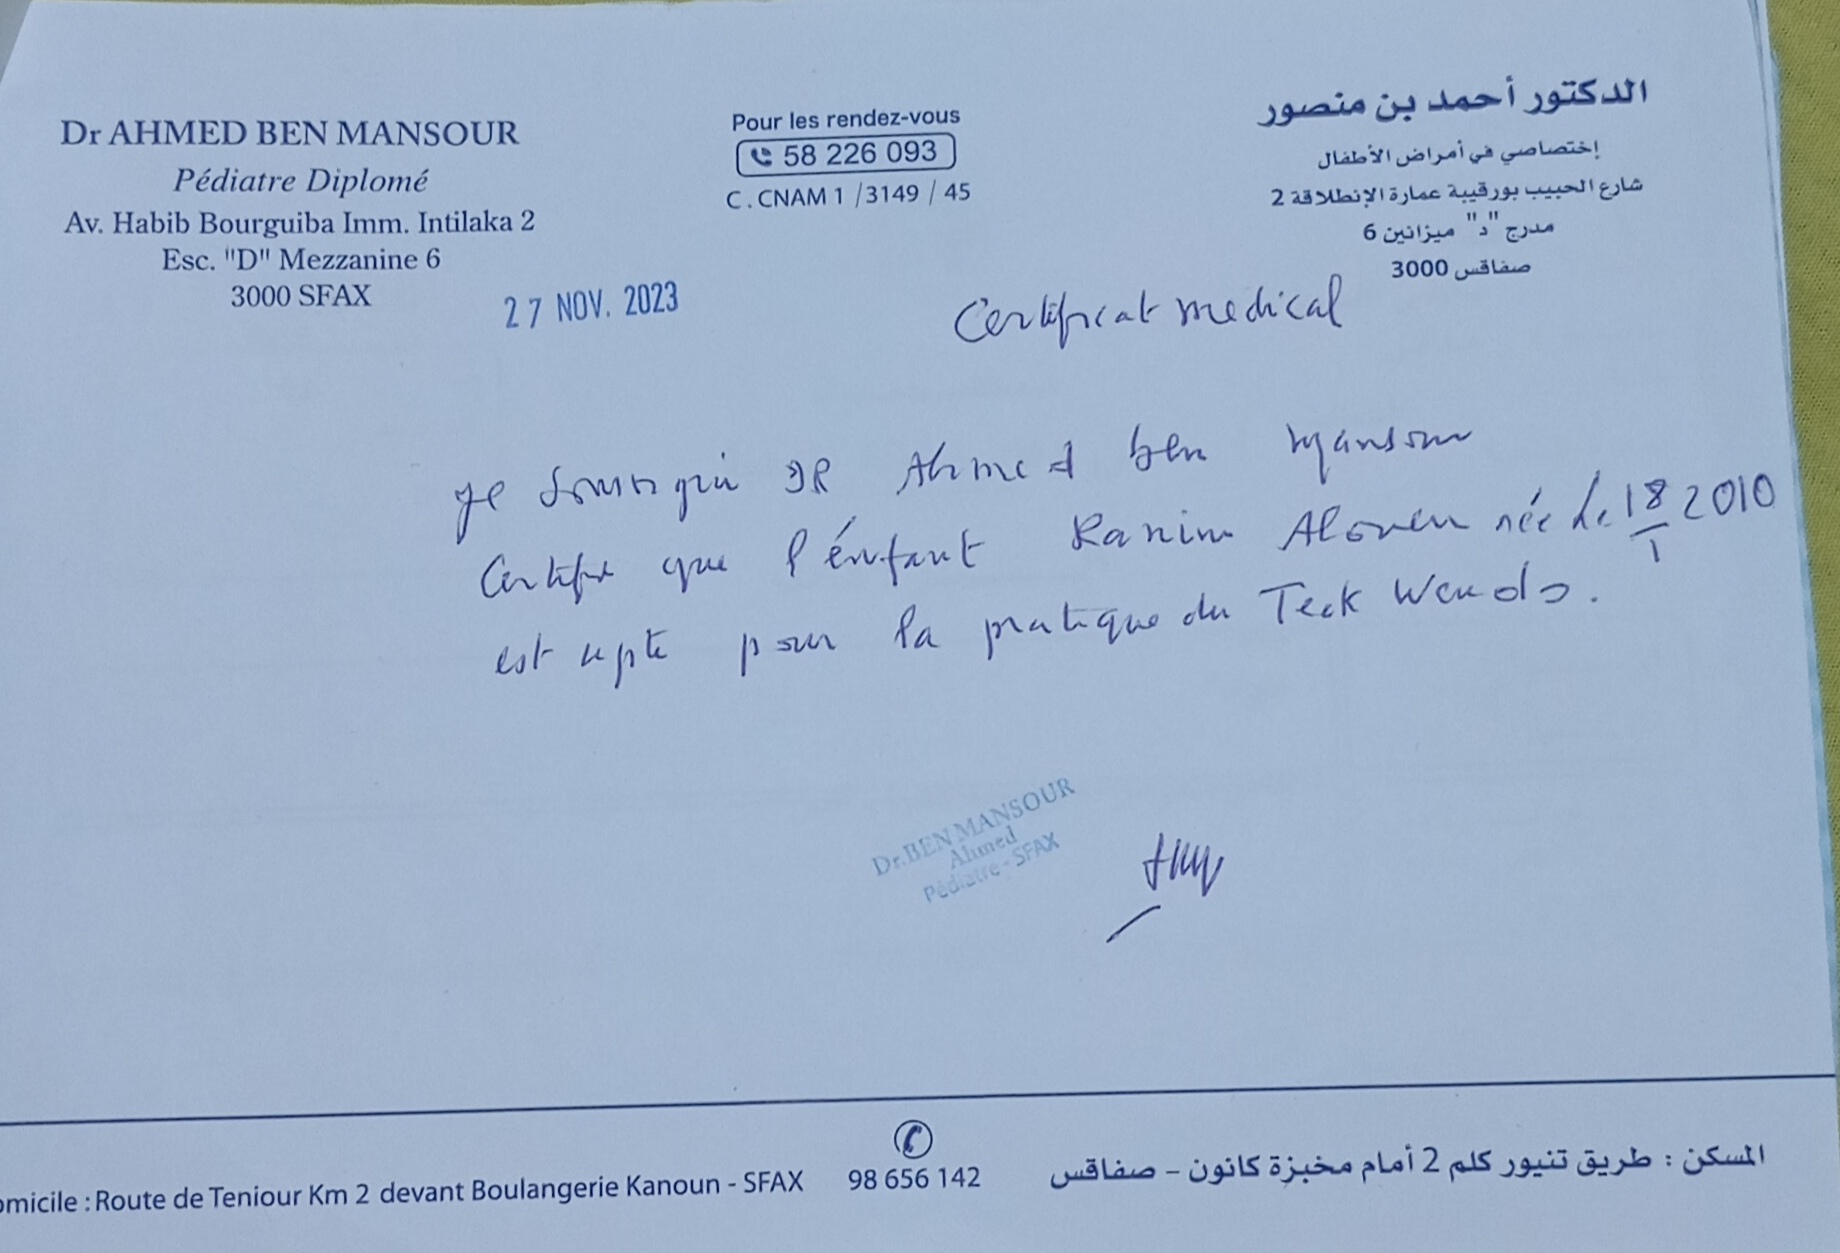 Dr AHMED BEN MANSOUR
Pédiatre Diplomé
Av. Habib Bourguiba Imm. Intilaka 2
Esc. "D" Mezzanine 6
3000 SFAX
Pour les rendez-vous
58 226 093
C . CNAM 1 / 3149 / 45
الدكتور أحمد بن منصور
إختصاصي في أمراض الأطفال
شارع الحبيب بورقيبة عمارة الإنطلاقة 2
مدرج "د" ميزانين 6
صفاقس 3000
27 NOV. 2023
Certificat medical
Je DR Ahmed ben Mansour
Certifie que l'énfant Ranim née le 18/1 2010
est apte pour la pratique du Teck Wendo.
Dr. BEN MANSOUR
Ahmed
Pédiatre - SFAX
omicile : Route de Teniour Km 2 devant Boulangerie Kanoun - SFAX
98 656 142
المسكن : طريق تنيور كلم 2 أمام مخبزة كانون – صفاقس